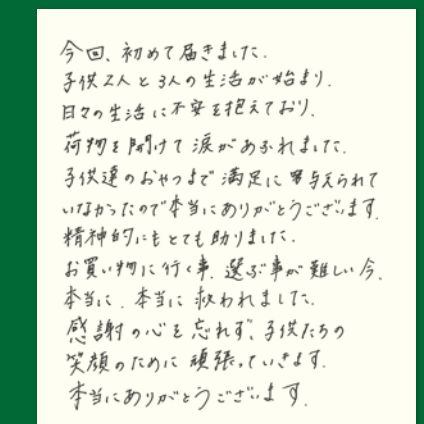 今回、初めて届きました.
子供2人と3人の生活が始まり.
日々の生活に不安を抱えており.
荷物を開けて涙があふれました.
子供達のおやつまで満足に与えられて
いなかったので本当にありがとうございます.
精神的にもとても助りました.
お買い物に行く事、選ぶ事が難しい今.
本当に、本当に救われました.
感謝の心を忘れず、子供たちの
笑顔のために頑張っていきます.
本当にありがとうございます.